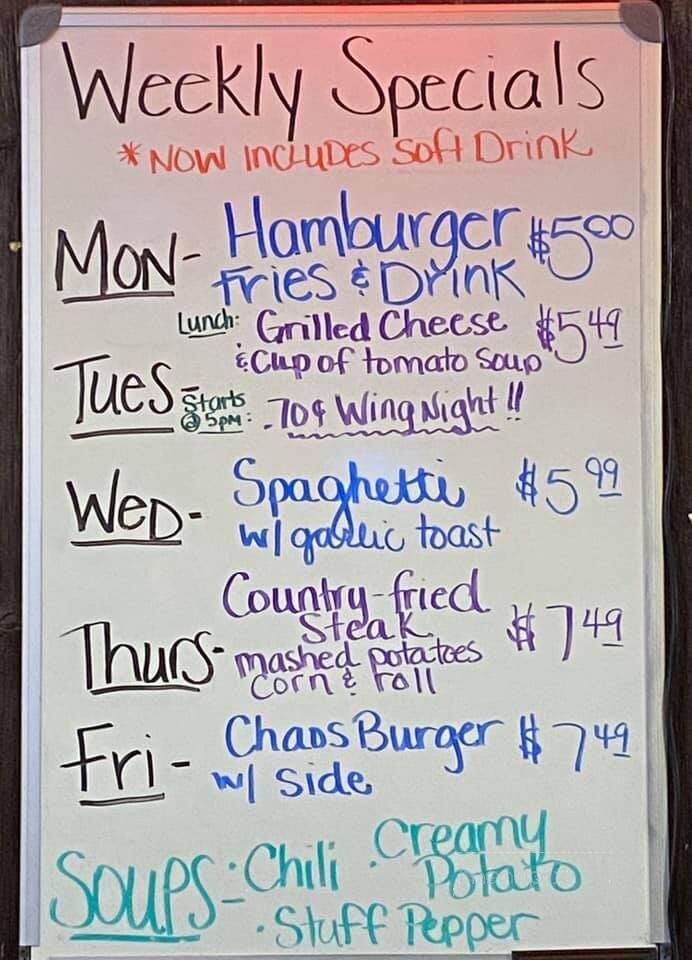 Weekly Specials
* NOW INCLUDES Soft Drink
MON- Hamburger $5.00
Fries & Drink
Lunch: Grilled Cheese $5.49
& Cup of tomato Soup
Tues- Starts @ 5pm: .70¢ Wing Night!!
Wed- Spaghetti $5.99
w/ garlic toast
Thurs- Country-fried Steak $7.49
mashed potatoes
corn & roll
Fri- Chaos Burger $7.49
w/ side
Soups- • Chili • Creamy Potato
• Stuff Pepper